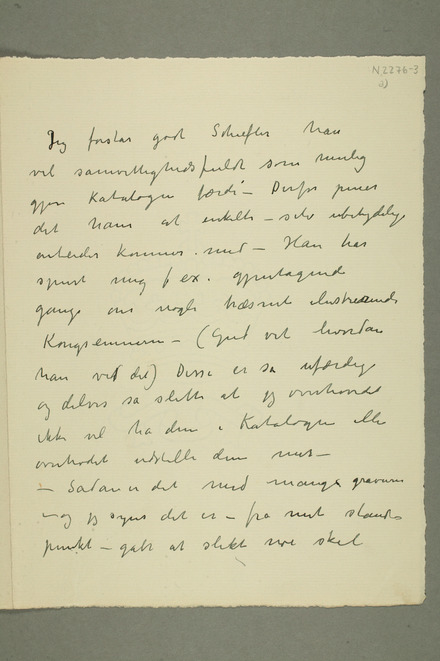 N2276-3
a)
Jeg forstår godt Schiefler han
vil samvittighedsfuldt som mulig
gjøre Katalogen færdi – Derfor piner
det ham at enkelte – selv ubetydelige
arbeider kommer med – Han har
spurt mig f ex. gjentagende
gange om nogle træsnit
Kongsemnerne – (Gud vet hvordan
han vet det) Disse er så uferdige
og delvis så slette at jeg overhovedet
ikke vil ha dem i Katalogen eller
overhodet udstille dem mer –
– Sådan er det med mange gravurer
– og jeg synes det er – fra mit stands
punkt – galt at slikt noe skal